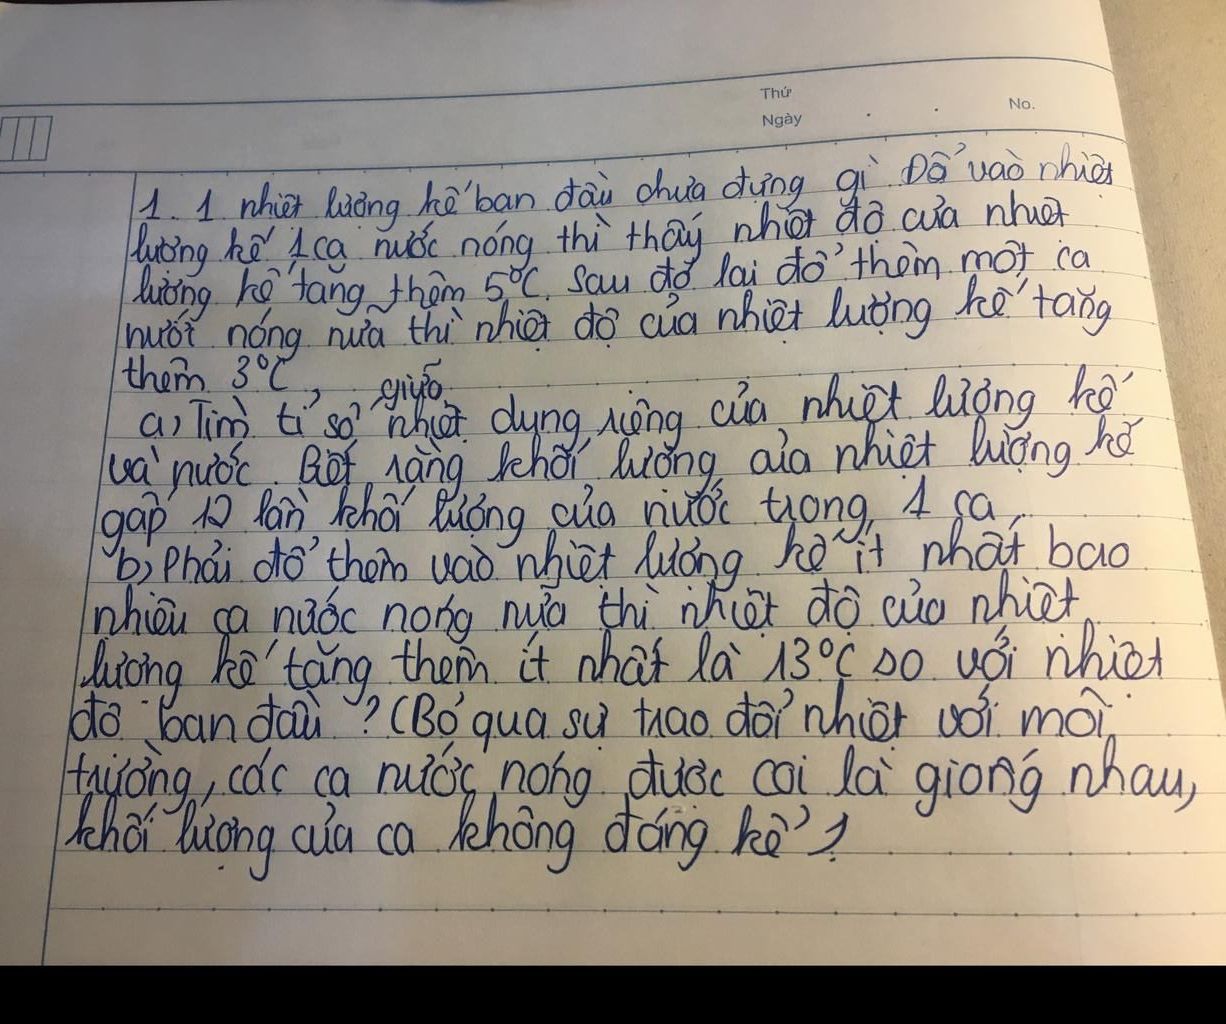 Thứ
Ngày
No.
1. 1 nhiệt lượng kế ban đầu chưa đựng gì Đổ vào nhiệt
lượng kế 1 ca nước nóng thì thấy nhiệt độ của nhiệt
lượng kế tăng thêm 5°C. Sau đó lại đổ thêm một ca
nước nóng nữa thì nhiệt độ của nhiệt lượng kế tăng
thêm 3°C,
a) Tìm tỉ số giữa nhiệt dung riêng của nhiệt lượng kế
và nước. Biết rằng khối lượng của nhiệt lượng kế
gấp 12 lần khối lượng của nước trong 1 ca.
b) Phải đổ thêm vào nhiệt lượng kế ít nhất bao
nhiêu ca nước nóng nữa thì nhiệt độ của nhiệt
lượng kế tăng thêm ít nhất là 13°C so với nhiệt
độ ban đầu? (Bỏ qua sự trao đổi nhiệt với môi
trường, các ca nước nóng được coi là giống nhau,
khối lượng của ca không đáng kể)